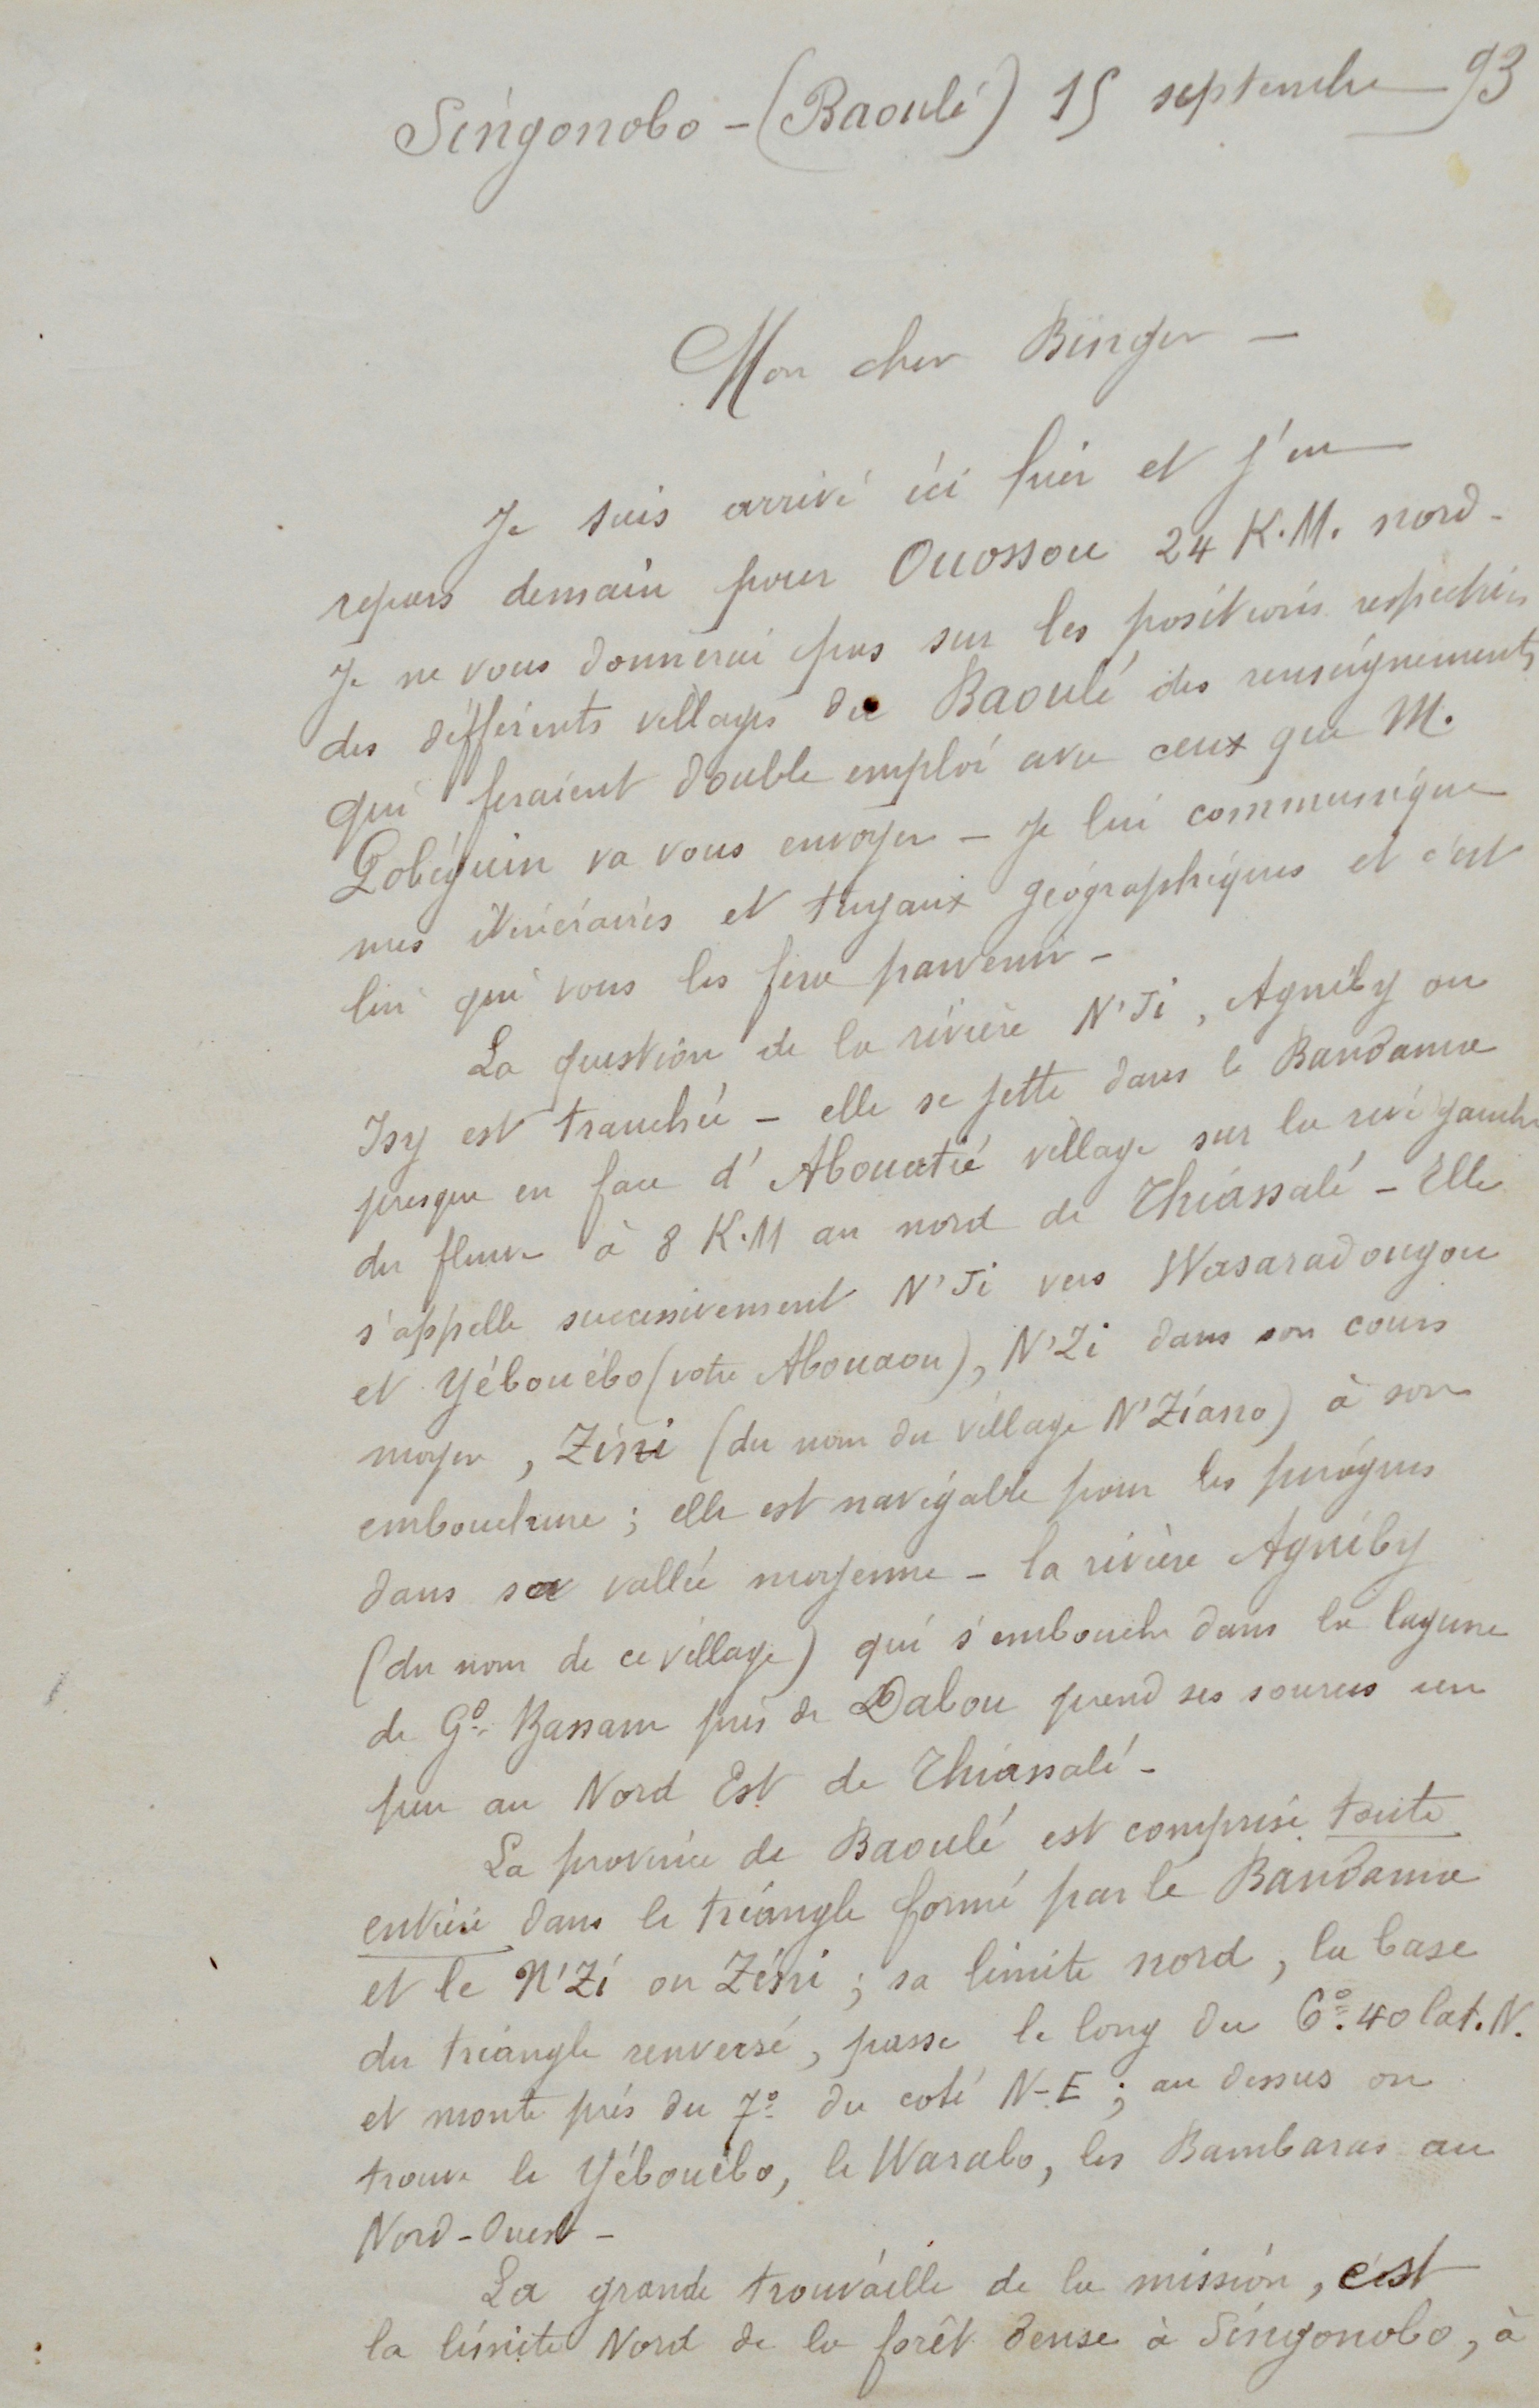 Singonobo - (Baoulé) 15 septembre 93
Mon cher Binger -
Je suis arrivé ici hier et j'en
repars demain pour Ouossou 24 K.M. nord -
Je ne vous donnerai pas sur les positions respectives
des différents villages du Baoulé des renseignements
qui feraient double emploi avec ceux que M.
Pobéguin va vous envoyer - Je lui communique
mes itinéraires et tuyaux géographiques et c'est
lui qui vous les fera parvenir -
La question de la rivière N'Ji, Agniby ou
Isy est tranchée - elle se jette dans le Bandama
presque en face d'Abouatié village sur la rive gauche
du fleuve à 8 K.M au nord de Thiassalé - Elle
s'appelle successivement N'Ji vers Wasaradougou
et Yébouébo (votre Abouaou), N'Zi dans son cours
moyen, Zini (du nom du village N'Ziano) à son
embouchure ; elle est navigable pour les pirogues
dans sa vallée moyenne - la rivière Agniby
(du nom de ce village) qui s'embouche dans la lagune
de Gd. Bassam près de Dabou prend ses sources un
peu au Nord Est de Thiassalé -
La province de Baoulé est comprise toute
entière dans le triangle formé par le Bandama
et le N'Zi ou Zini ; sa limite nord, la base
du triangle renversé, passe le long du 6°. 40 lat. N.
et monte près du 7° du coté N-E ; au dessus on
trouve le Yébouébo, le Warabo, les Bambaras au
Nord-Ouest -
La grande trouvaille de la mission, c'est
la limite Nord de la forêt dense à Singonobo, à